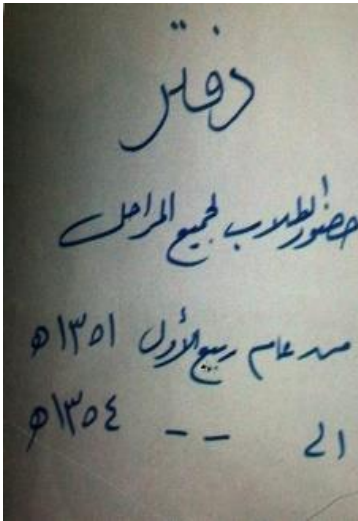 دفتر
حضور الطلاب لجميع المراحل
من عام ربيع الأول ١٣٥١هـ
الى -- ١٣٥٤هـ